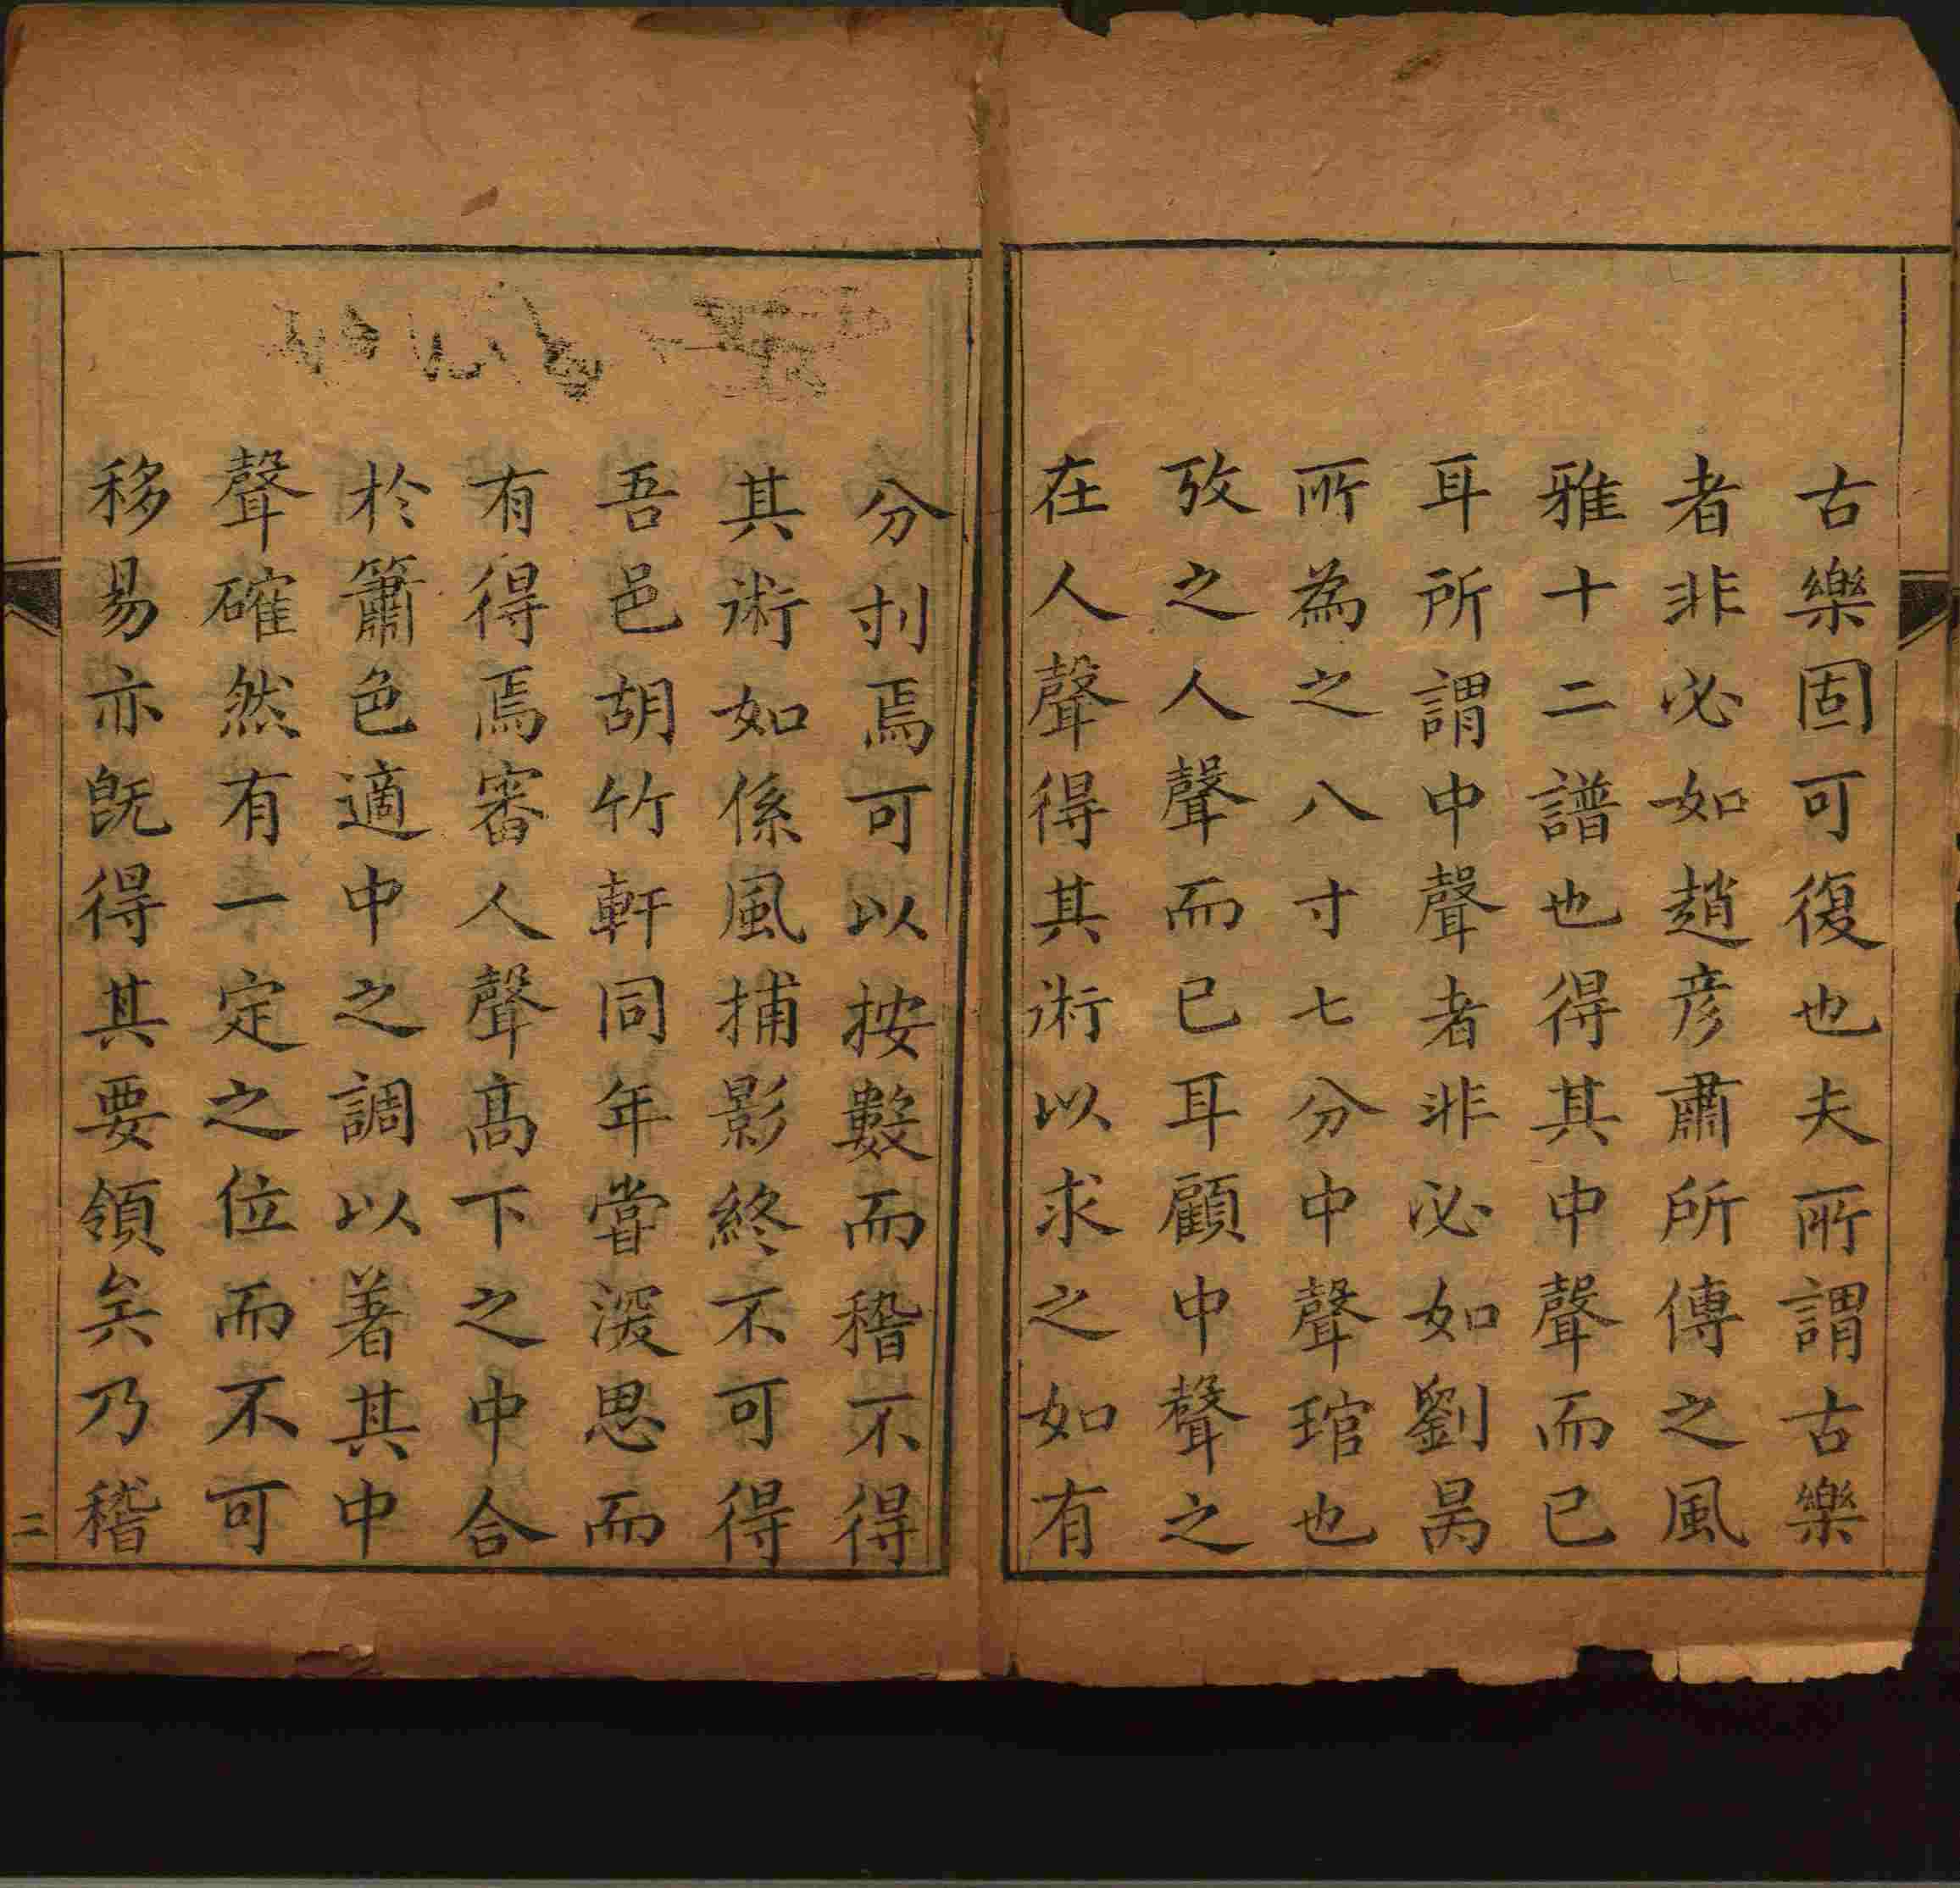 古樂固可復也夫所謂古樂
者非必如趙彦肅所傳之風
雅十二譜也得其中聲而已
耳所謂中聲者非必如劉昺
所為之八寸七分中聲琯也
攷之人聲而已耳顧中聲之
在人聲得其術以求之如有
分刌焉可以按數而稽不得
其術如係風捕影終不可得
吾邑胡竹軒同年嘗深思而
有得焉審人聲高下之中合
於簫色適中之調以著其中
聲確然有一定之位而不可
移易亦既得其要領矣乃稽
二